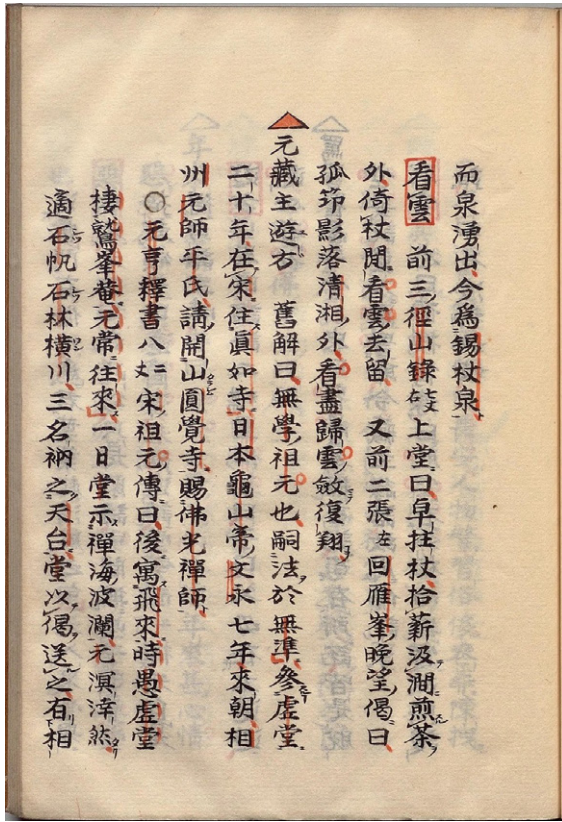 而泉湧出今爲錫杖泉
看雲 前三徑山錄七丈右上堂曰皁拄杖拾薪汲澗煎茶
外倚杖閑看雲去留 又前二張左回雁峯晚望偈曰
孤筇影落清湘外看盡歸雲斂復翔
元藏主遊方 舊解曰無學祖元也嗣法於無準參虛堂
二十年在宋住眞如寺日本龜山帝文永七年來朝相
州元師平氏請開山圓覺寺賜佛光禪師
○元亨釋書八二丈宋祖元傳曰後寓飛來時愚虛堂
棲鷲峯菴元常往來一日堂示禪海波瀾元溟涬然
適石帆石林橫川三名衲之天台堂以偈送之有相